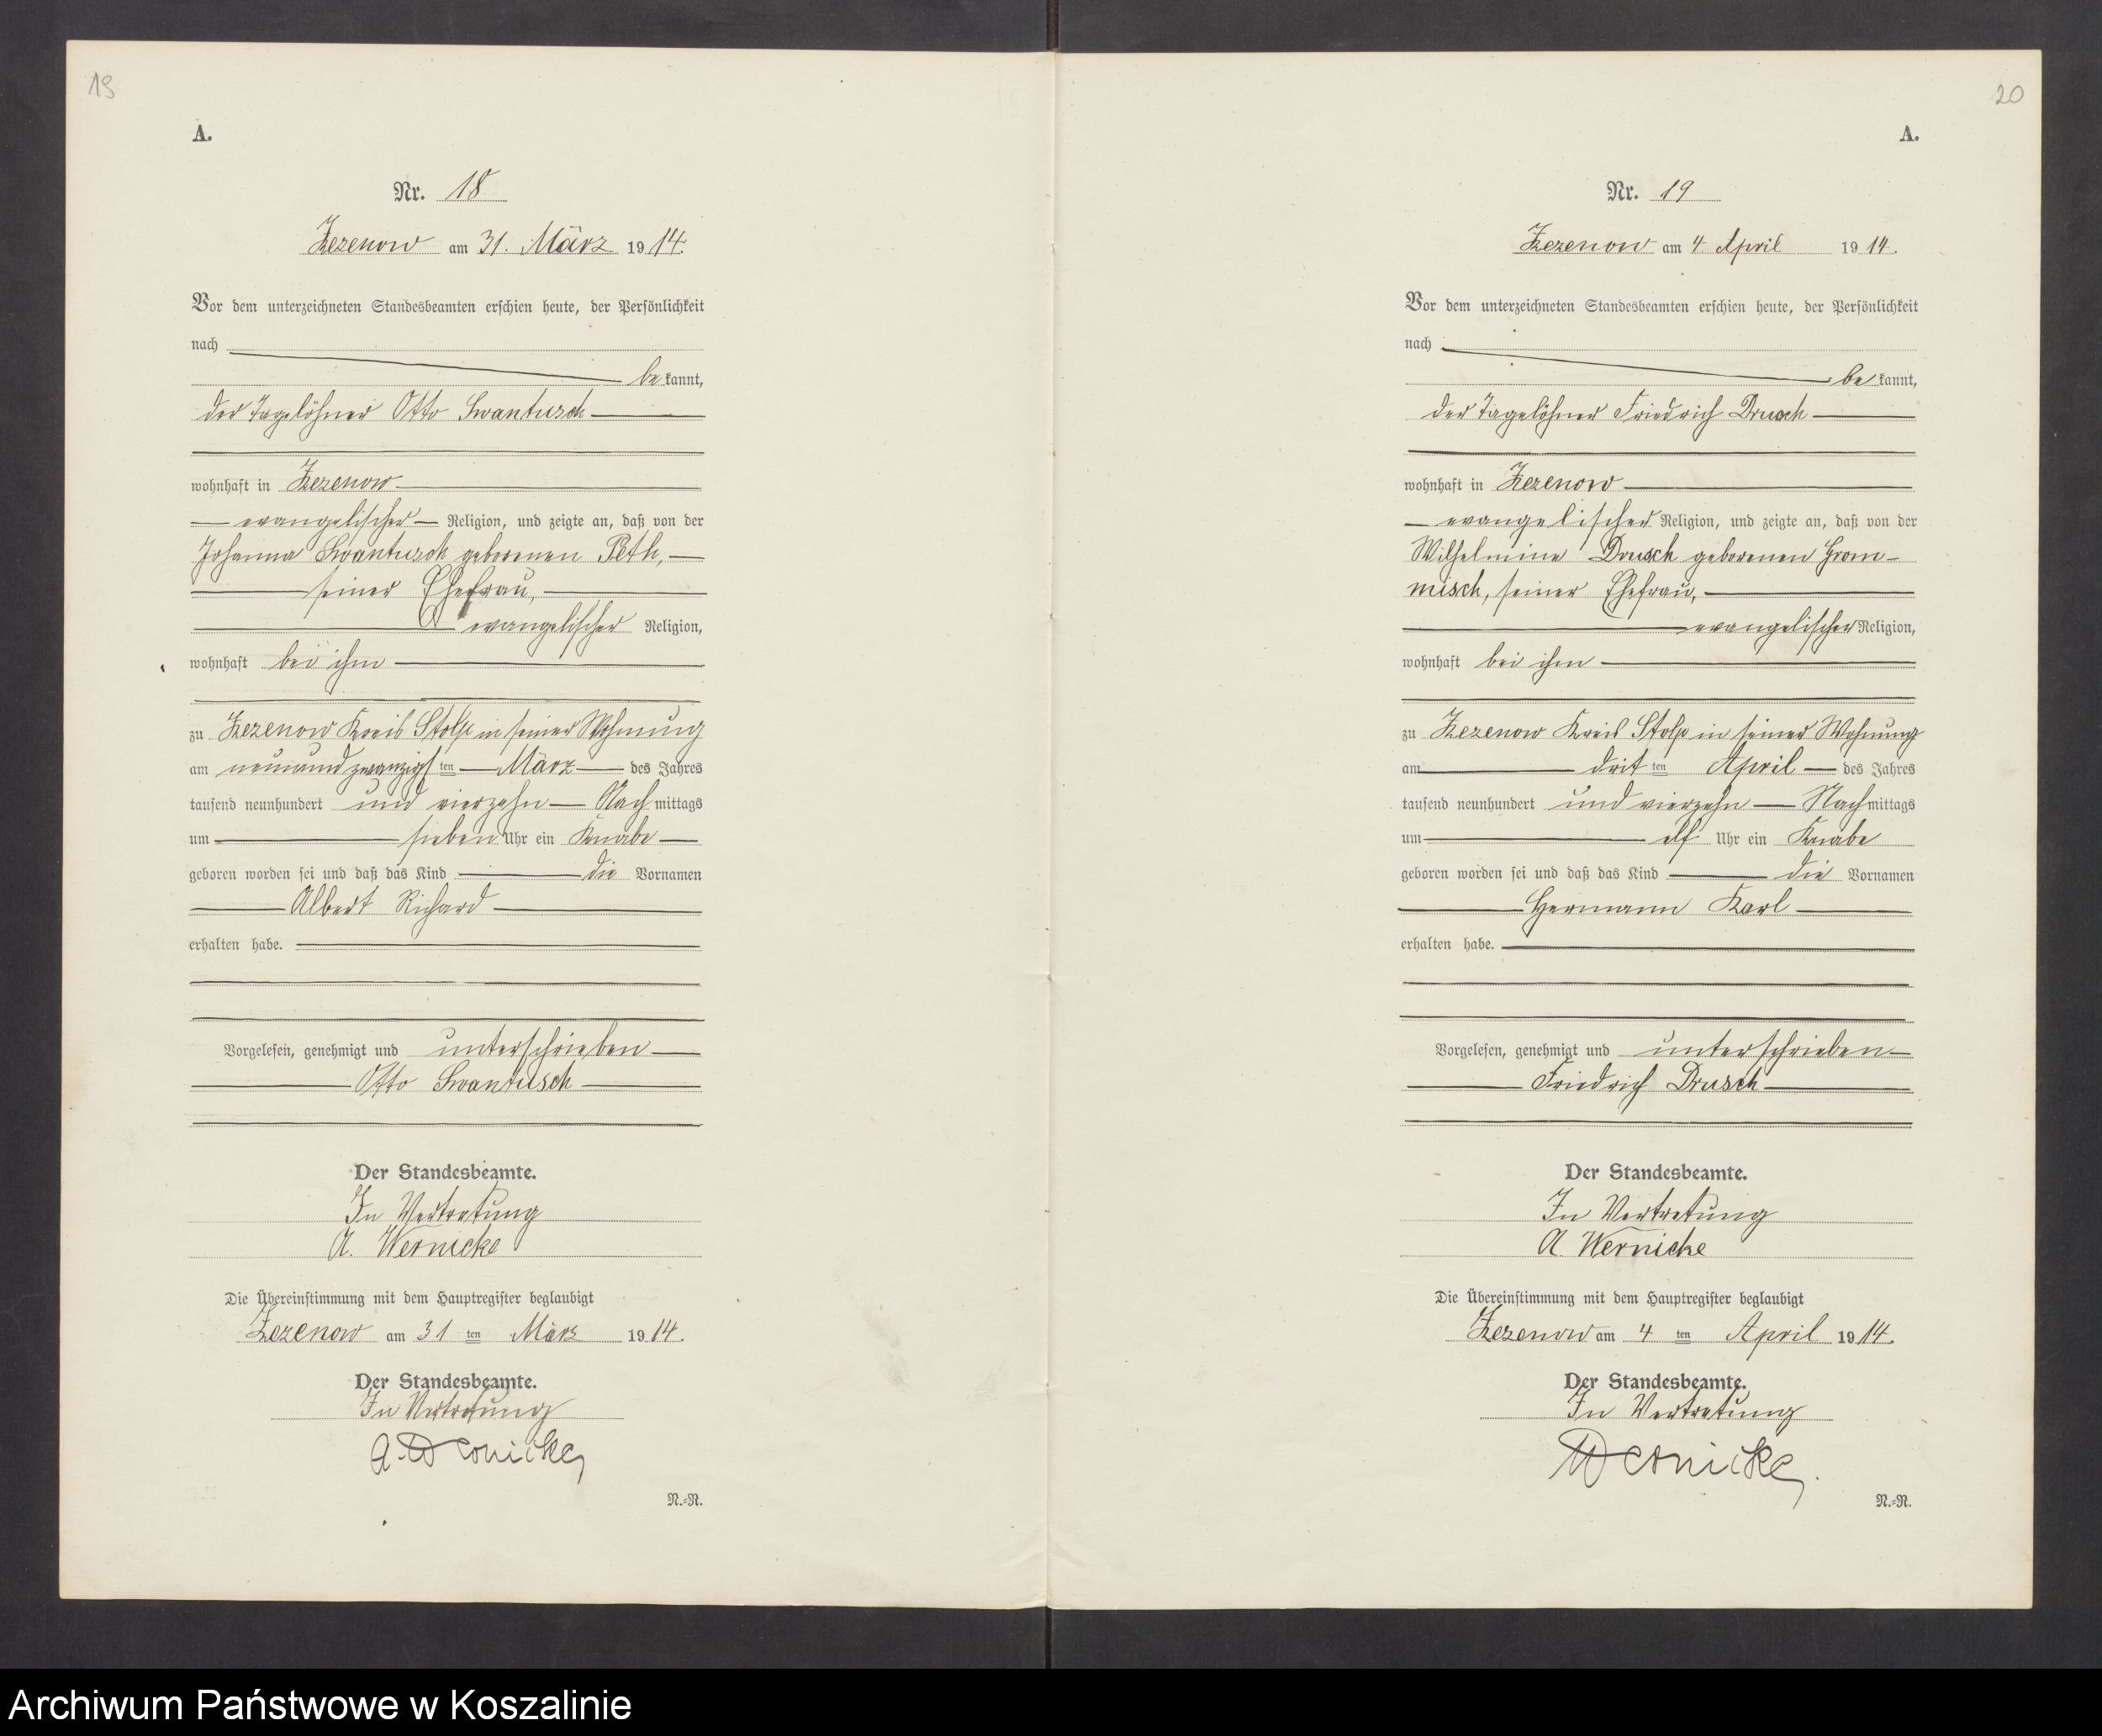 19
A.
Nr. 18
Zezenow am 31. März 1914.
Vor dem unterzeichneten Standesbeamten erschien heute, der Persönlichkeit
nach
be kannt,
der Tagelöhner Otto Swantusch
wohnhaft in Zezenow
evangelischer Religion, und zeigte an, daß von der
Johanna Swantusch geborenen Peth,
seiner Ehefrau,
evangelischer Religion,
wohnhaft bei ihm
zu Zezenow Kreis Stolp in seiner Wohnung
am neunundzwanzigsten März des Jahres
tausend neunhundert und vierzehn Nachmittags
um sieben Uhr ein Knabe
geboren worden sei und daß das Kind die Vornamen
Albert Richard
erhalten habe.
Vorgelesen, genehmigt und unterschrieben
Otto Swantusch
Der Standesbeamte.
In Vertretung
A. Wernicke
Die Übereinstimmung mit dem Hauptregister beglaubigt
Zezenow am 31 ten März 1914.
Der Standesbeamte.
In Vertretung
A. Wernicke
N.=R.
20
A.
Nr. 19
Zezenow am 4 April 1914.
Vor dem unterzeichneten Standesbeamten erschien heute, der Persönlichkeit
nach
be kannt,
der Tagelöhner Friedrich Drusch
wohnhaft in Zezenow
evangelischer Religion, und zeigte an, daß von der
Wilhelmine Drusch geborenen Grom-
misch, seiner Ehefrau,
evangelischer Religion,
wohnhaft bei ihm
zu Zezenow Kreis Stolp in seiner Wohnung
am dritten April des Jahres
tausend neunhundert und vierzehn Nachmittags
um elf Uhr ein Knabe
geboren worden sei und daß das Kind die Vornamen
Hermann Karl
erhalten habe.
Vorgelesen, genehmigt und unterschrieben
Friedrich Drusch
Der Standesbeamte.
In Vertretung
A Wernicke
Die Übereinstimmung mit dem Hauptregister beglaubigt
Zezenow am 4 ten April 1914.
Der Standesbeamte.
In Vertretung
Wernicke.
N.=R.
Archiwum Państwowe w Koszalinie